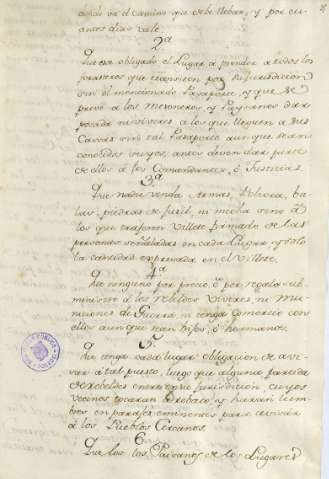 donde va el camino que debe llebar, y por cu
antos dias vale.
2ª
Que sea obligado el Lugar a prender a todos los
forasteros que transiten por su Jurisdiccion
sin el mencionado Pasaporte, y que se
a los Mesoneros, y Paysanos dar
posada ni viveres a los que lleguen a sus
Casas sin tal Pasaporte aunque sean
conocidos suyos, antes deven dar parte
de ellos á los Comandantes, ó Justicias.
3ª
Que nadie venda Armas, Polvora, ba
las, piedras de fusil, ni mecha sino á
los que traxeren Villete firmado de las
personas señaladas en cada Lugar, y solo
la cantidad expresada en el Villete.
4ª
Que ninguno por precio, ó por regalo sub-
ministre á los rebeldes Viveres, ni Mu
niciones de Guerra, ni tenga comercio con
ellos aunque sean hijos, ó hermanos.
5
Que tenga cada lugar obligacion de avi-
sar á tal puesto, luego que alguna partida
de rebeldes entre en su Jurisdiccion cuyos
vecinos tocaran á rebato, y haran lum
bres en parajes eminentes para avisar
á los Pueblos Cercanos.
6
Que los Paisanos de los Lugares